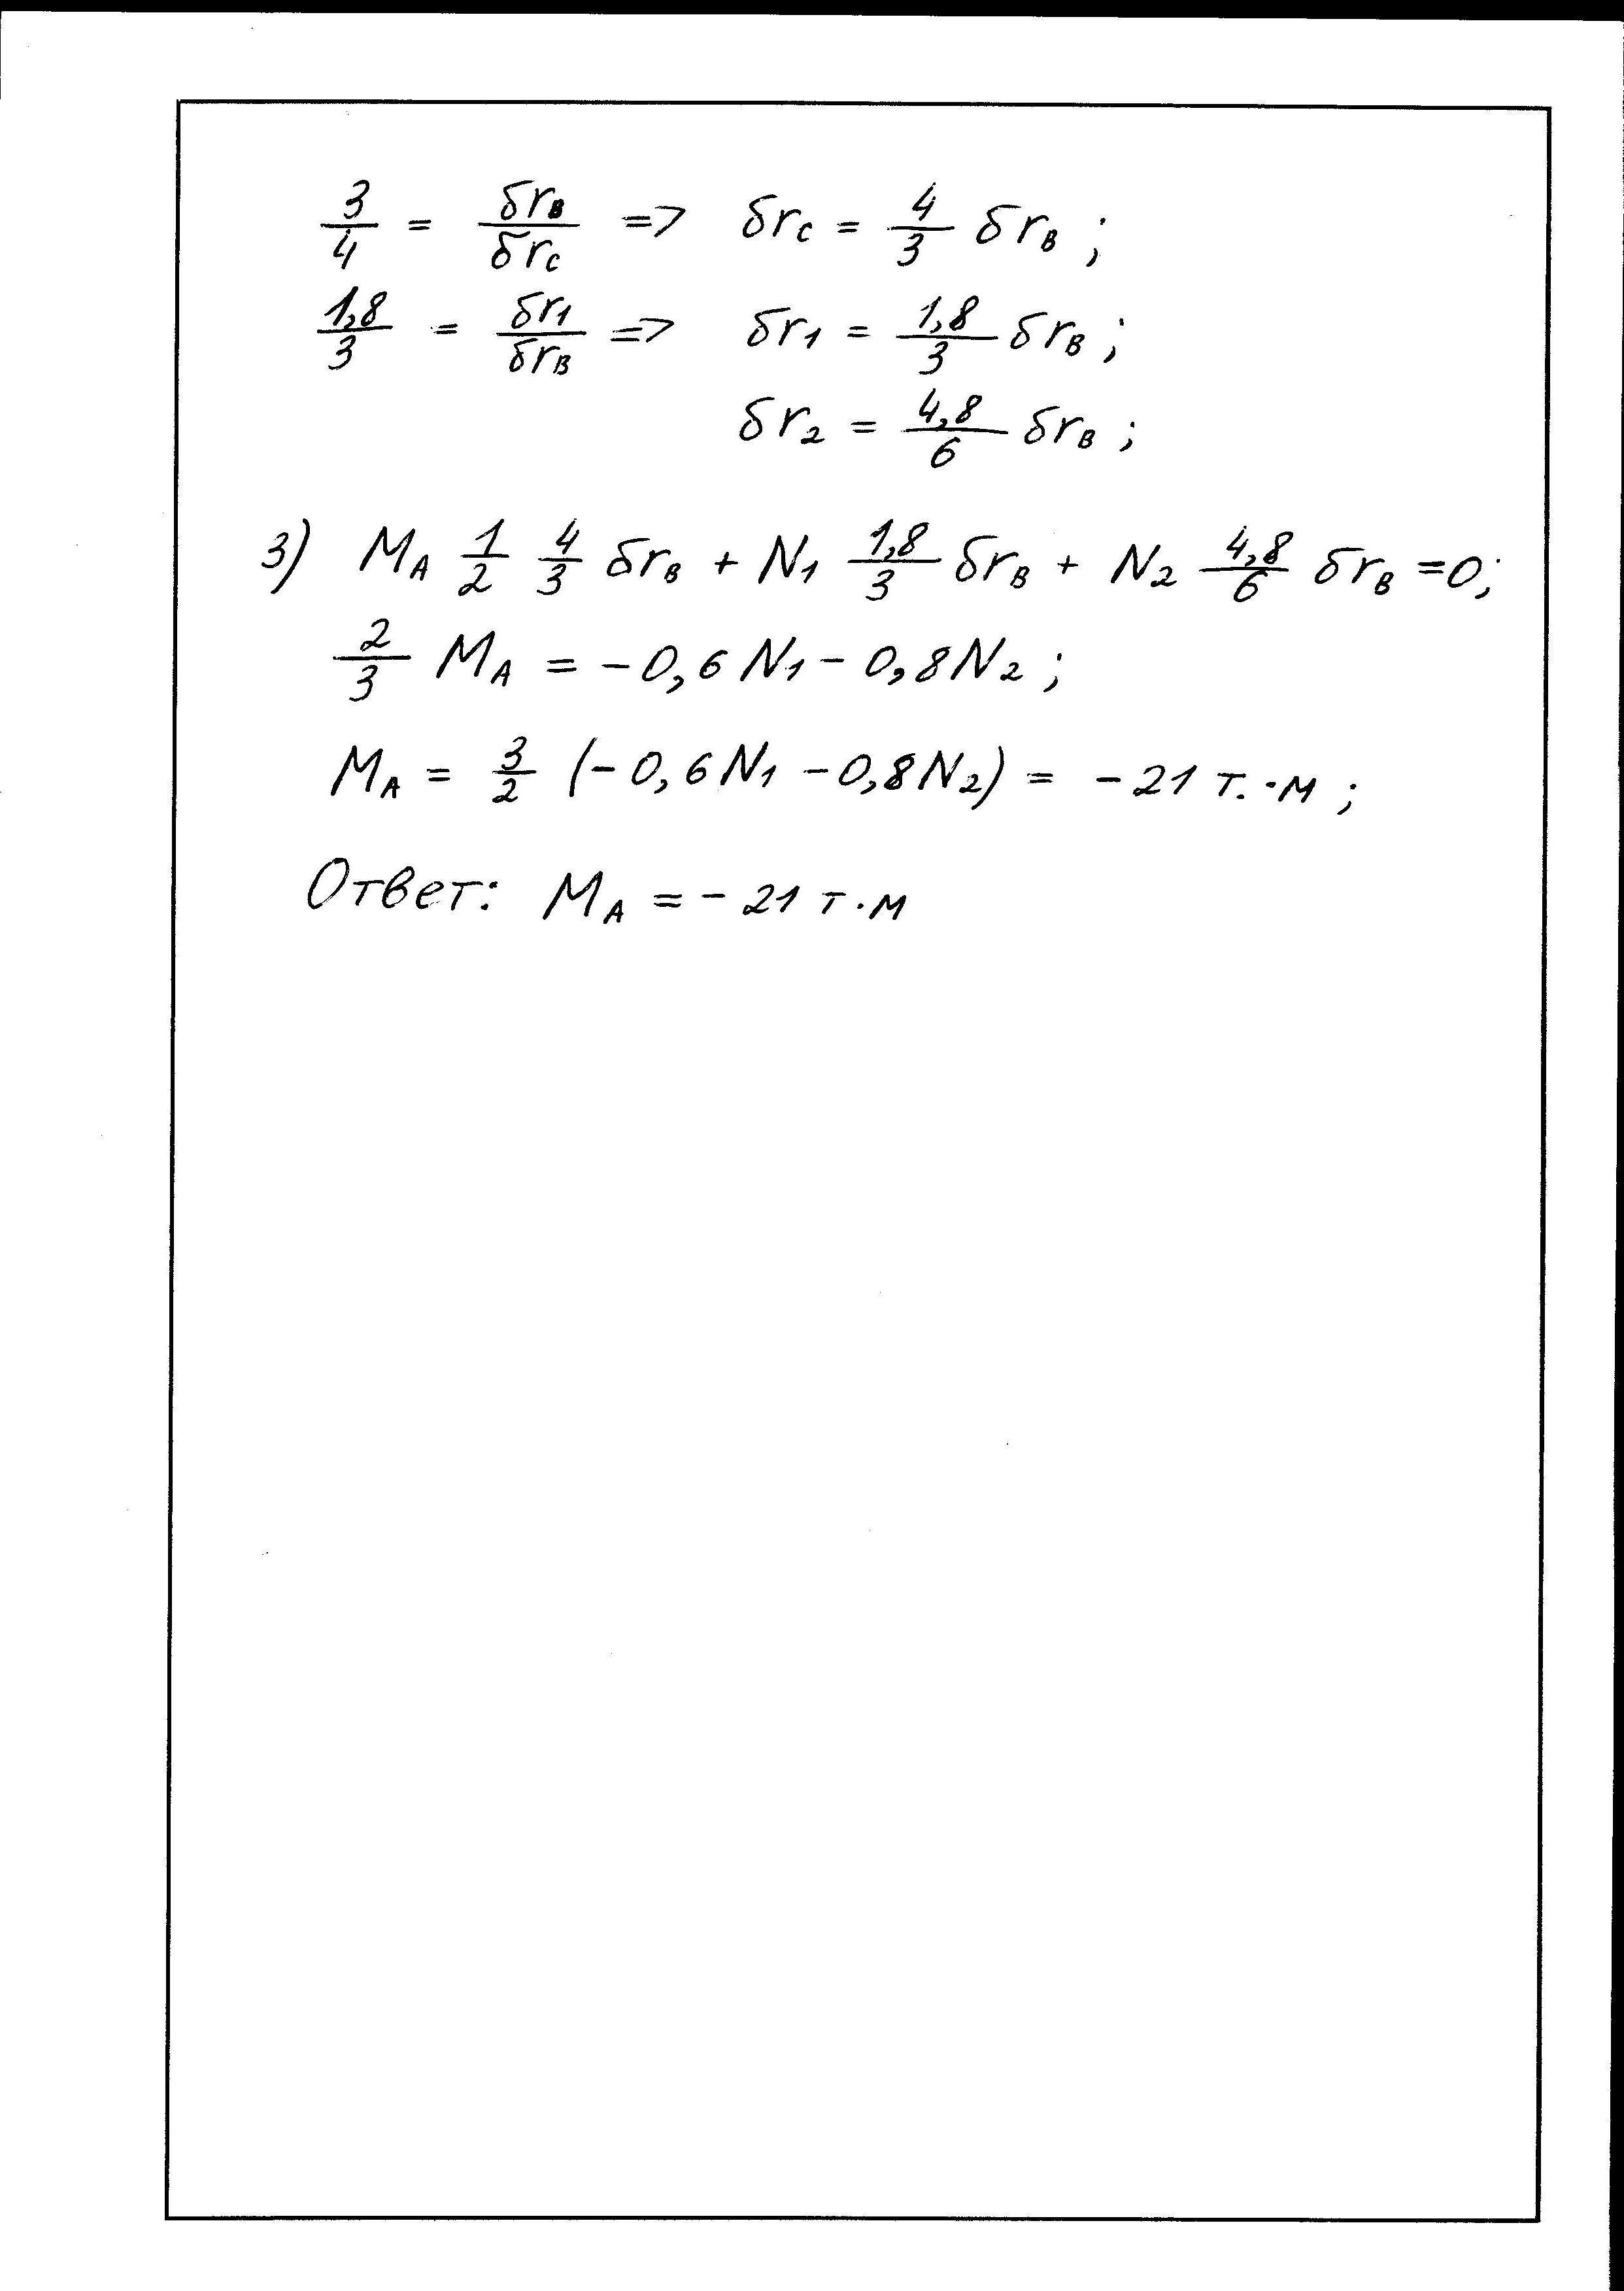 3/4 = δr_B/δr_C => δr_C = 4/3 δr_B ;
1,8/3 = δr_1/δr_B => δr_1 = 1,8/3 δr_B ;
δr_2 = 4,8/6 δr_B ;
3) M_A 1/2 4/3 δr_B + N_1 1,8/3 δr_B + N_2 4,8/6 δr_B = 0;
2/3 M_A = -0,6 N_1 - 0,8 N_2 ;
M_A = 3/2 (-0,6 N_1 - 0,8 N_2) = -21 т.·м ;
Ответ: M_A = -21 т·м